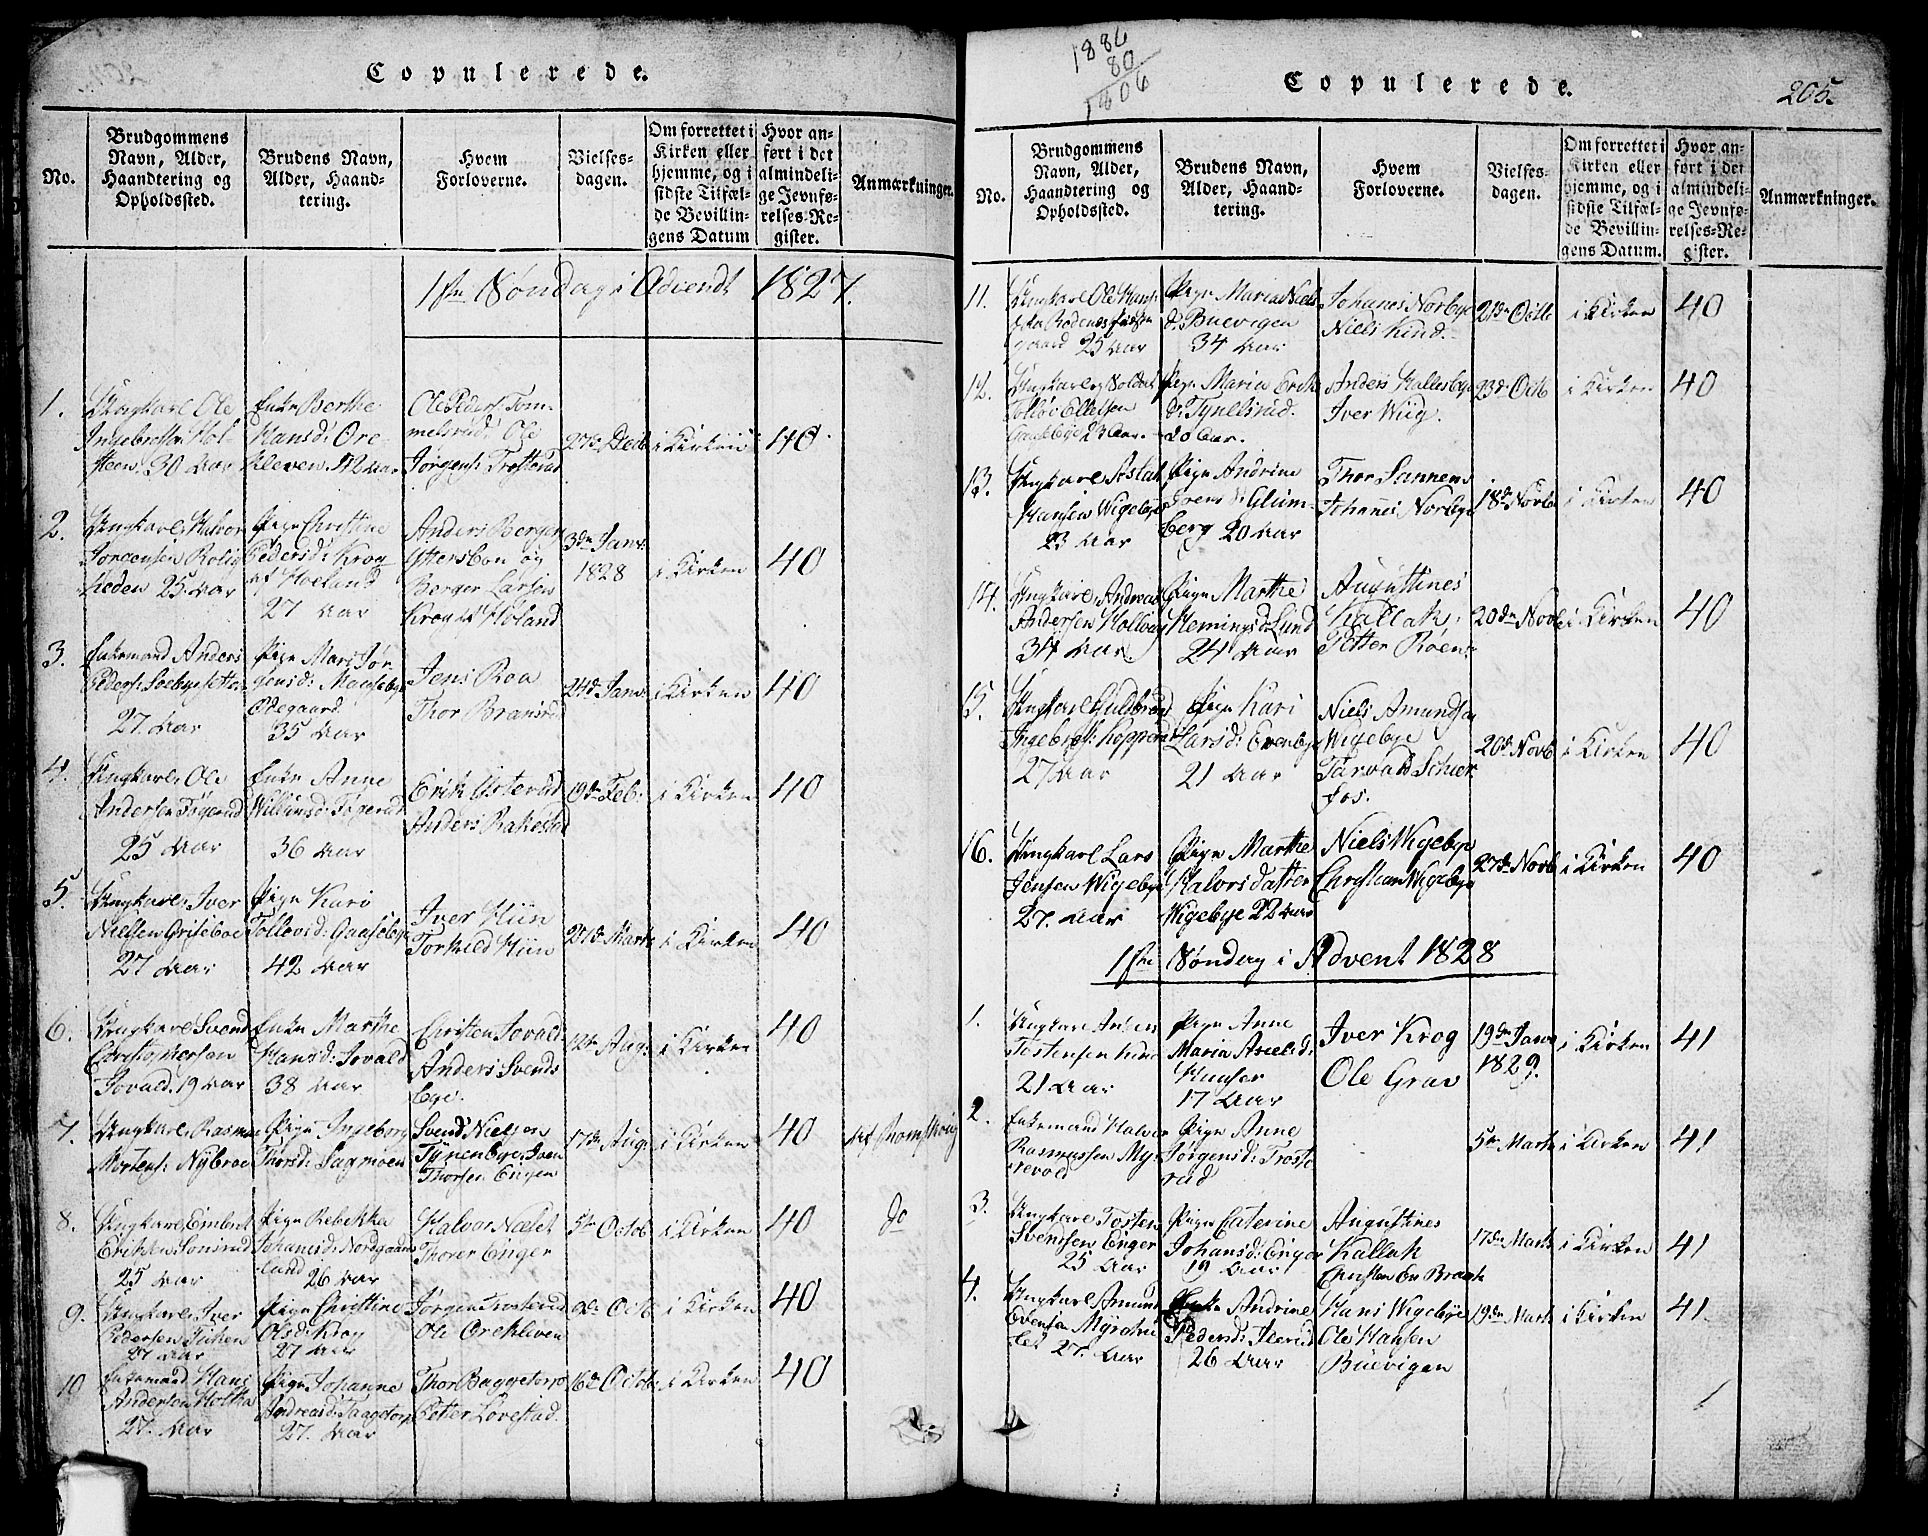 Copulerede.
No.
Brudgommens Navn, Alder, Haandtering og Opholdssted.
Brudens Navn, Alder, Haandtering.
Hvem Forloverne.
Vielsesdagen.
Om forrettet i Kirken eller hjemme, og i sidste Tilfælde Bevillingens Datum
Hvor anført i det almindelige Jevnførelses-Register.
Anmærkninger.
1ste Søndag i Advendt 1827.
1.
Ungkarl Ole
Ingebretsen Hol-
steen, 30 Aar
Enke Berthe
Hansd: Ore-
kleven
Ole Peders: Tom-
melsrud, Ole
Jørgens: Trosterud
27de Decb
i Kirken
40
2.
Ungkarl Halvor
Jørgensen Rolig-
heden 25 Aar
Pige Christine
Pedersd: Krog
af Høeland
27 Aar
Anders Berger
Ytersbon og
Berger Larsen
Krog af Høland
3de Janv:
1828
i Kirken
40
3.
Enkemand Anders
Peders:
27 Aar
Pige Mari Jør-
gensd:
Ødegaard
35 Aar
Jens Roa
Thor Bransrud
24de Janv:
i Kirken
40
4.
Ungkarl Ole
Andersen Føgerud
25 Aar
Enke Anne
Willumsd: Føgerud
36 Aar
Erik Østerud
Anders Rakestad
19de Feb:
i Kirken
40
5.
Ungkarl Iver
Nielsen Griseboe
27 Aar
Pige Kari
Tollevsd: Gaasebye
42 Aar
Iver Hiin
Torkild Hiin
27de Marts
i Kirken
40
6.
Ungkarl Svend
Christophersen
Sovald. 19 Aar
Enke Marthe
Hansd: Sovald
38 Aar
Christen Sovald
Anders Svends
bye.
12te Aug:
i Kirken
40
7.
Ungkarl Rasmus
Mortens: Nybroe
Pige Ingeborg
Thorsd: Sagmoen
Svend Nielsen
Tynenbye, Sven
Thorsen Engen
17de Aug:
i Kirken
40
8.
Ungkarl Embret
Eriksen Sonsrud
25 Aar
Pige Rebekka
Johansd: Nordgaan
land 26 Aar
Halvor Næset
Thorer Enger
5te Octob
i Kirken
40
do
9.
Ungkarl Iver
Pedersen
27 Aar
Pige Christine
Olsd: Krog
27 Aar
Jørgen Trosterud
Ole Orekleven
i Kirken
40
10
Enkemand Hans
Andersen Holtka
27. Aar
Pige Johanne
Andreasd: Taagetorp
27. Aar
Thor Buggetorp
Petter Løvestad.
16de Octob:
i Kirken
40
1886
80
1806
Copulerede.
205.
No.
Brudgommens Navn, Alder, Haandtering og Opholdssted.
Brudens Navn, Alder, Haandtering.
Hvem Forloverne.
Vielsesdagen.
Om forrettet i Kirken eller hjemme, og i sidste Tilfælde Bevillingens Datum.
Hvor anført i det almindelige Jevnførelses-Register.
Anmærkninger.
11.
Ungkarl Ole Hans
gaard 25 Aar
Pige Maria Niels
d: Buevigen
34 Aar
Johanes Norbye
Niels Kind.
21de Octb
i Kirken
40
12.
Ungkarl og Soldat
Tollov Ellefsen
23 Aar.
Pige Maria Erik
d: Tynelsrud.
20 Aar.
Anders Hallesbye
Iver Wiig.
23de Octb
i Kirken
40
13.
Ungkarl Astak
Hansen Wigebye
23 Aar
Pige Andrine
Ivers d: Glim-
berg 20 Aar
Thor Sannem
Johanes Norbye
18de Novb
i Kirken
40
14.
Ungkarl Andreas
Andersen Holvig
34 Aar.
Pige Marthe
Hemingsd: Lund
24 Aar
Augustines
Kallak,
Petter Røen.
20de Novb
i Kirken
40
15.
Ungkarl Guldbrand
Ingebrets: Kopperud
27 Aar
Pige Kari
Larsd: Evenbye
21 Aar
Niels Amundsen
Wigebye
Tarvald Schier
fos.
20de Novb
i Kirken
40
16.
Ungkarl Lars
Jensen Wigebye
27. Aar
Pige Marthe
Halvorsdatter
Wigebye 22 Aar
Niels Wigebye
Christian Wigebye
27de Novb
i Kirken
40
1ste Søndag i Advent 1828
1.
Ungkarl
Tostensen Lund
21 Aar
Pige Anne
Maria Axelsd:
17 Aar
Iver Krog
Ole Grav
19de Janv
1829.
i Kirken
41
2.
Enkemand Halvor
Rasmussen My-
revold
Pige Anne
Jørgensd: Troste
rud
5te Marts
i Kirken
41
3.
Ungkarl Tosten
Svendsen Enger
25 Aar
Pige Caterine
Johansd: Enger
19 Aar
Augustines
Kallak
Christen Ev Braath
17de Marts
i Kirken
41
4.
Ungkarl Amund
Evensen
27. Aar
Enke Andrine
Pedersd:
26 Aar
Hans Wigebye
Ole Hansen
Buevigen
19de Marts
i Kirken
41.